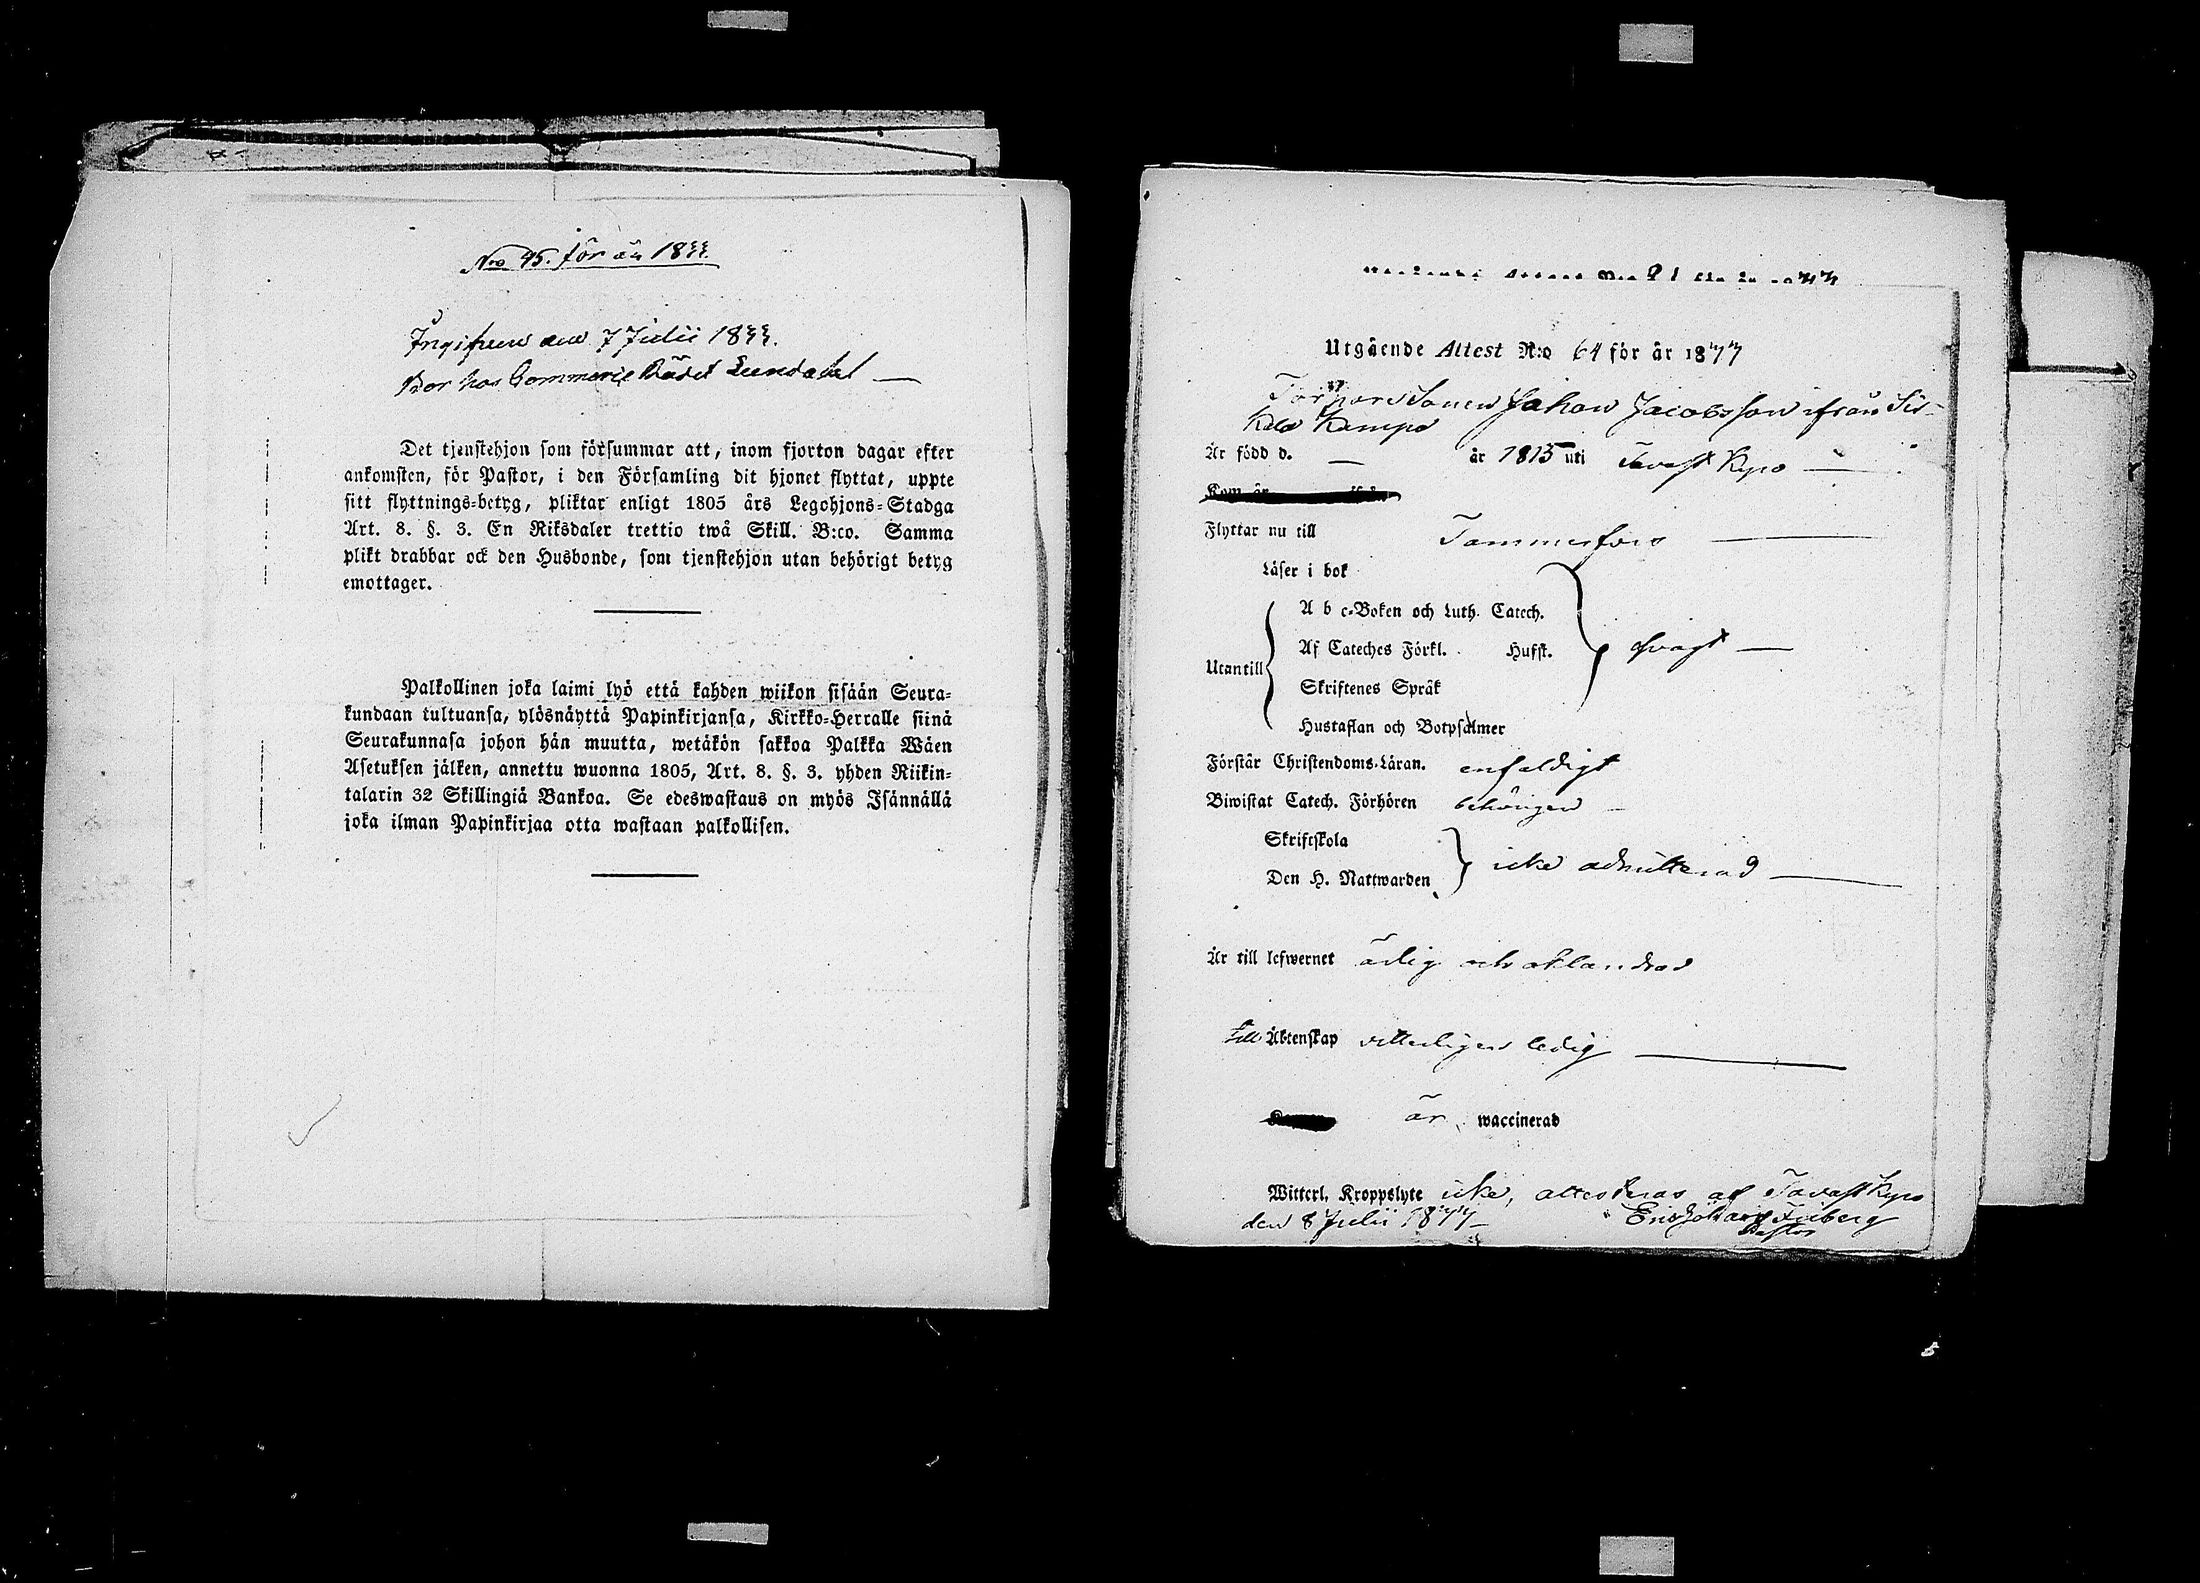 Nro 45. för år 1833.
Ingifven den 7 Julii 1833.
Bor hos Commerie Rådet Lundahl
Det tjenstehjon som försummar att, inom fjorton dagar efter
ankomsten, för Pastor, i den Församling dit hjonet flyttat, uppte
sitt flyttnings-betyg, pliktar enligt 1805 års Legohjons-Stadga
Art. 8. §. 3. En Riksdaler trettio twå Skill. B:co. Samma
plikt drabbar ock den Husbonde, som tjenstehjon utan behörigt betyg
emottager.
Palkollinen joka laimi lyö että kahden wiikon sisään Seura-
kundaan tultuansa, ylösnäyttä Papinkirjansa, Kirkko-Herralle siinä
Seurakunnasa johon hän muutta, wetäkön sakkoa Palkka Wäen
Asetuksen jälken, annettu wuonna 1805, Art. 8. §. 3. yhden Riikin-
talarin 32 Skillingiä Bankoa. Se edeswastaus on myös Isännällä
joka ilman Papinkirjaa otta wastaan palkollisen.
Utgående Attest N:o 64 för år 1844
Torpare Sonen Johan Jacobsson ifrån Sis-
Kala Kampo
Är född d. — år 1815 uti Tavast Kyro
Flyttar nu till Tammerfors
Läser i bok
A b c-Boken och Luth. Catech.
Af Cateches Förkl. Hufst. svagt
Utantill
Skriftenes Språk
Hustaflan och Botpsalmer
Förstår Christendoms-Läran. enfaldigt
Biwistat Catech. Förhören behörigen
Skriftskola
Den H. Nattwarden icke admitterad
Är till lefwernet ärlig och oklandrad
till Äktenskap vitterligen ledig
är waccinerad
Witterl. Kroppslyte icke, attesteras af Tavast Kyro
den 8 Julii 1844 Eric Johan Friberg
Pastor